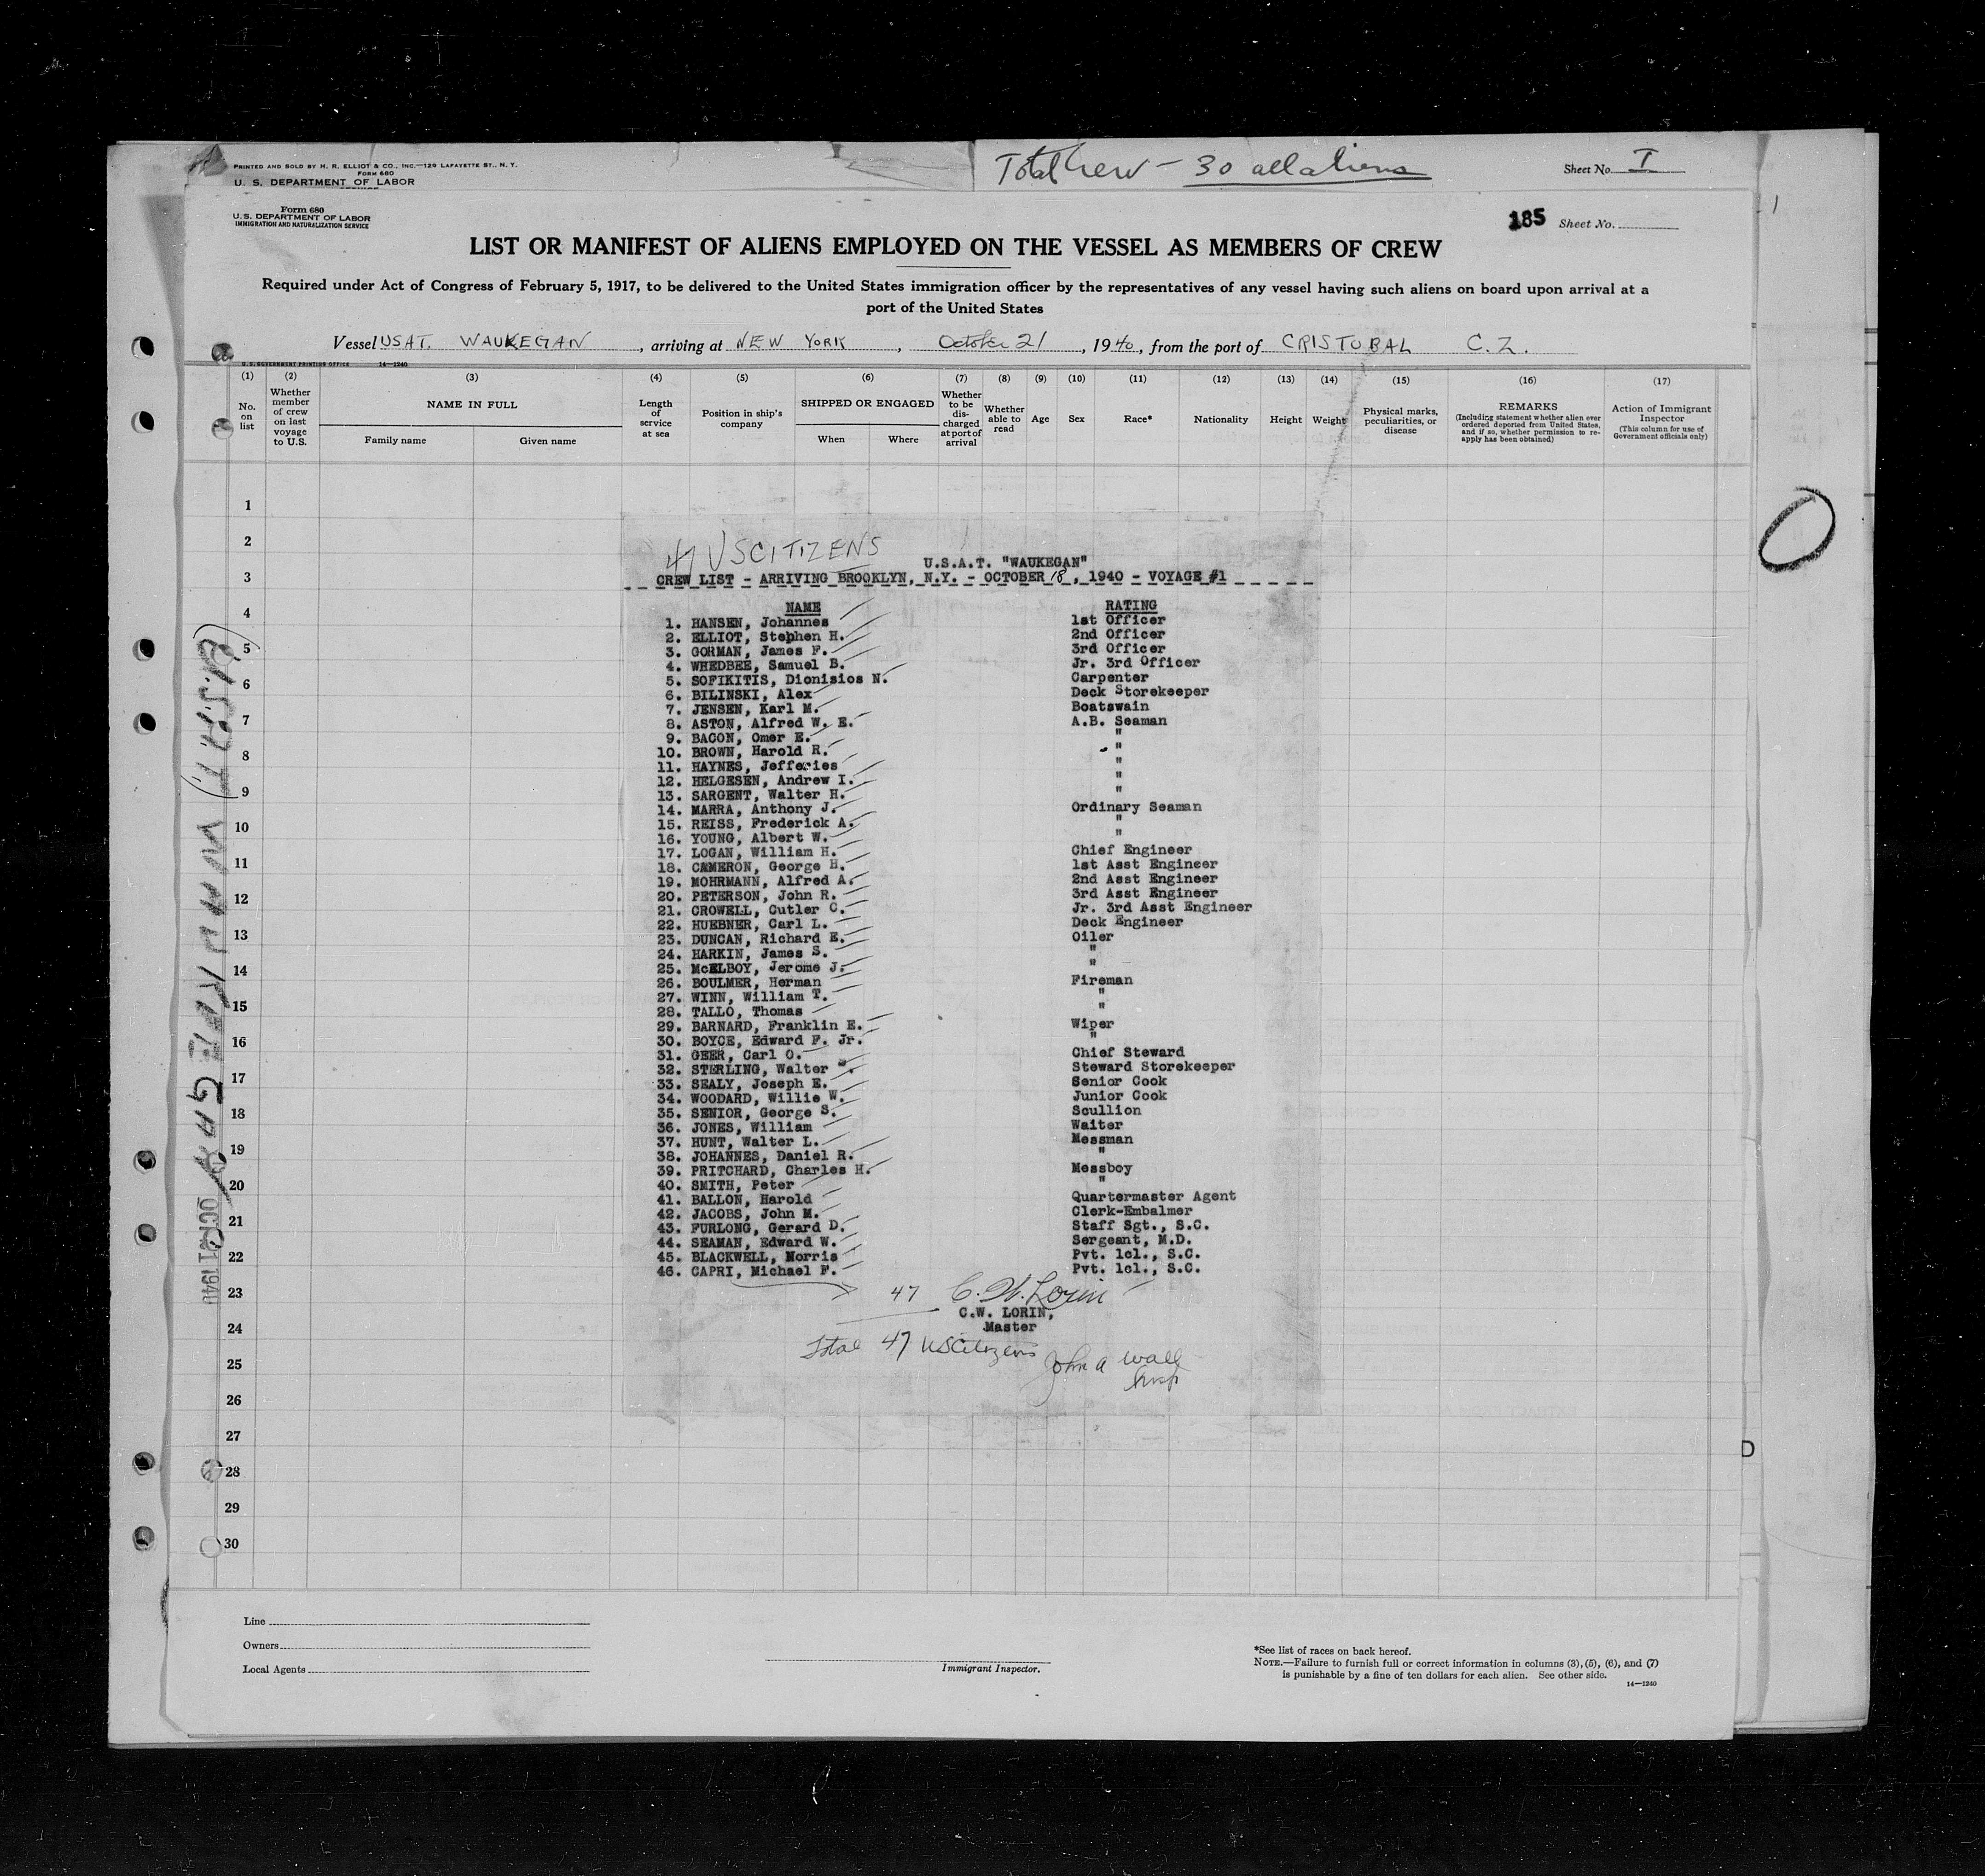 PRINTED AND SOLD BY H. R. ELLIOT & CO., INC.—129 LAFAYETTE ST., N. Y.
FORM 680
U. S. DEPARTMENT OF LABOR
Total Crew - 30 all aliens
Sheet No. I
Form 680
U. S. DEPARTMENT OF LABOR
IMMIGRATION AND NATURALIZATION SERVICE
185 Sheet No.
LIST OR MANIFEST OF ALIENS EMPLOYED ON THE VESSEL AS MEMBERS OF CREW
Required under Act of Congress of February 5, 1917, to be delivered to the United States immigration officer by the representatives of any vessel having such aliens on board upon arrival at a
port of the United States
Vessel USAT. WAUKEGAN, arriving at NEW YORK, October 21, 1940, from the port of CRISTOBAL C.Z.
U. S. GOVERNMENT PRINTING OFFICE 14—1240
(1) No. on list
(2) Whether member of crew on last voyage to U.S.
(3) NAME IN FULL
Family name Given name
(4) Length of service at sea
(5) Position in ship's company
(6) SHIPPED OR ENGAGED
When Where
(7) Whether to be discharged at port of arrival
(8) Whether able to read
(9) Age
(10) Sex
(11) Race*
(12) Nationality
(13) Height
(14) Weight
(15) Physical marks, peculiarities, or disease
(16) REMARKS (Including statement whether alien ever ordered deported from United States, and if so, whether permission to reapply has been obtained)
(17) Action of Immigrant Inspector (This column for use of Government officials only)
1
2
3
4
5
6
7
8
9
10
11
12
13
14
15
16
17
18
19
20
21
22
23
24
25
26
27
28
29
30
(U.S.A.T.) WAUKEGAN
OCT 21 1940
47 US CITIZENS
U.S.A.T. "WAUKEGAN"
CREW LIST - ARRIVING BROOKLYN, N.Y. - OCTOBER 18, 1940 - VOYAGE #1
NAME RATING
1. HANSEN, Johannes 1st Officer
2. ELLIOT, Stephen H. 2nd Officer
3. GORMAN, James F. 3rd Officer
4. WHEDBEE, Samuel B. Jr. 3rd Officer
5. SOFIKITIS, Dionisios N. Carpenter
6. BILINSKI, Alex Deck Storekeeper
7. JENSEN, Karl M. Boatswain
8. ASTON, Alfred W. E. A.B. Seaman
9. BACON, Omer E. "
10. BROWN, Harold R. "
11. HAYNES, Jefferies "
12. HELGESEN, Andrew I. "
13. SARGENT, Walter H. "
14. MARRA, Anthony J. Ordinary Seaman
15. REISS, Frederick A. "
16. YOUNG, Albert W. "
17. LOGAN, William H. Chief Engineer
18. CAMERON, George H. 1st Asst Engineer
19. MOHRMANN, Alfred A. 2nd Asst Engineer
20. PETERSON, John R. 3rd Asst Engineer
21. CROWELL, Cutler C. Jr. 3rd Asst Engineer
22. HUEBNER, Carl L. Deck Engineer
23. DUNCAN, Richard E. Oiler
24. HARKIN, James S. "
25. McELBOY, Jerome J. "
26. BOULMER, Herman Fireman
27. WINN, William T. "
28. TALLO, Thomas "
29. BARNARD, Franklin E. Wiper
30. BOYCE, Edward F. Jr. "
31. GEER, Carl O. Chief Steward
32. STERLING, Walter Steward Storekeeper
33. SEALY, Joseph E. Senior Cook
34. WOODARD, Willie W. Junior Cook
35. SENIOR, George S. Scullion
36. JONES, William Waiter
37. HUNT, Walter L. Messman
38. JOHANNES, Daniel R. "
39. PRITCHARD, Charles H. Messboy
40. SMITH, Peter "
41. BALLON, Harold Quartermaster Agent
42. JACOBS, John M. Clerk-Embalmer
43. FURLONG, Gerard D. Staff Sgt., S.C.
44. SEAMAN, Edward W. Sergeant, M.D.
45. BLACKWELL, Morris Pvt. 1cl., S.C.
46. CAPRI, Michael F. Pvt. 1cl., S.C.
47 C. W. Lorin
C.W. LORIN,
Master
Total 47 US Citizens
John A Wall
Insp
Line
Owners
Local Agents
Immigrant Inspector.
*See list of races on back hereof.
NOTE.—Failure to furnish full or correct information in columns (3), (5), (6), and (7)
is punishable by a fine of ten dollars for each alien. See other side.
14—1240